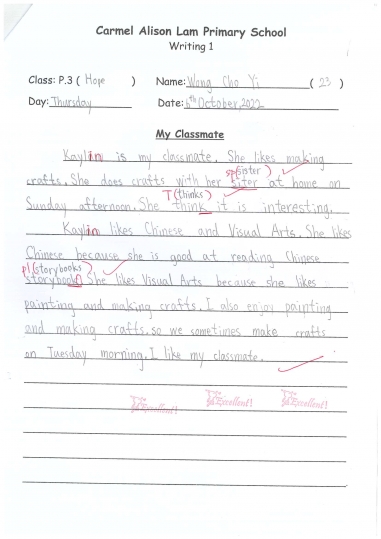 Carmel Alison Lam Primary School
Writing 1
Class: P.3 ( Hope ) Name: Wong Cho Yi ( 23 )
Day: Thursday Date: 6th October, 2022
My Classmate
Kaylin is my classmate. She likes making
sp(sister)
crafts. She does crafts with her siter at home on
T(thinks)
Sunday afternoon. She think it is interesting.
Kaylin likes Chinese and Visual Arts. She likes
Chinese because she is good at reading Chinese
pl(storybooks)
storybook. She likes Visual Arts because she likes
painting and making crafts. I also enjoy painting
and making crafts. so we sometimes make crafts
on Tuesday morning. I like my classmate.
Excellent! Excellent! Excellent!